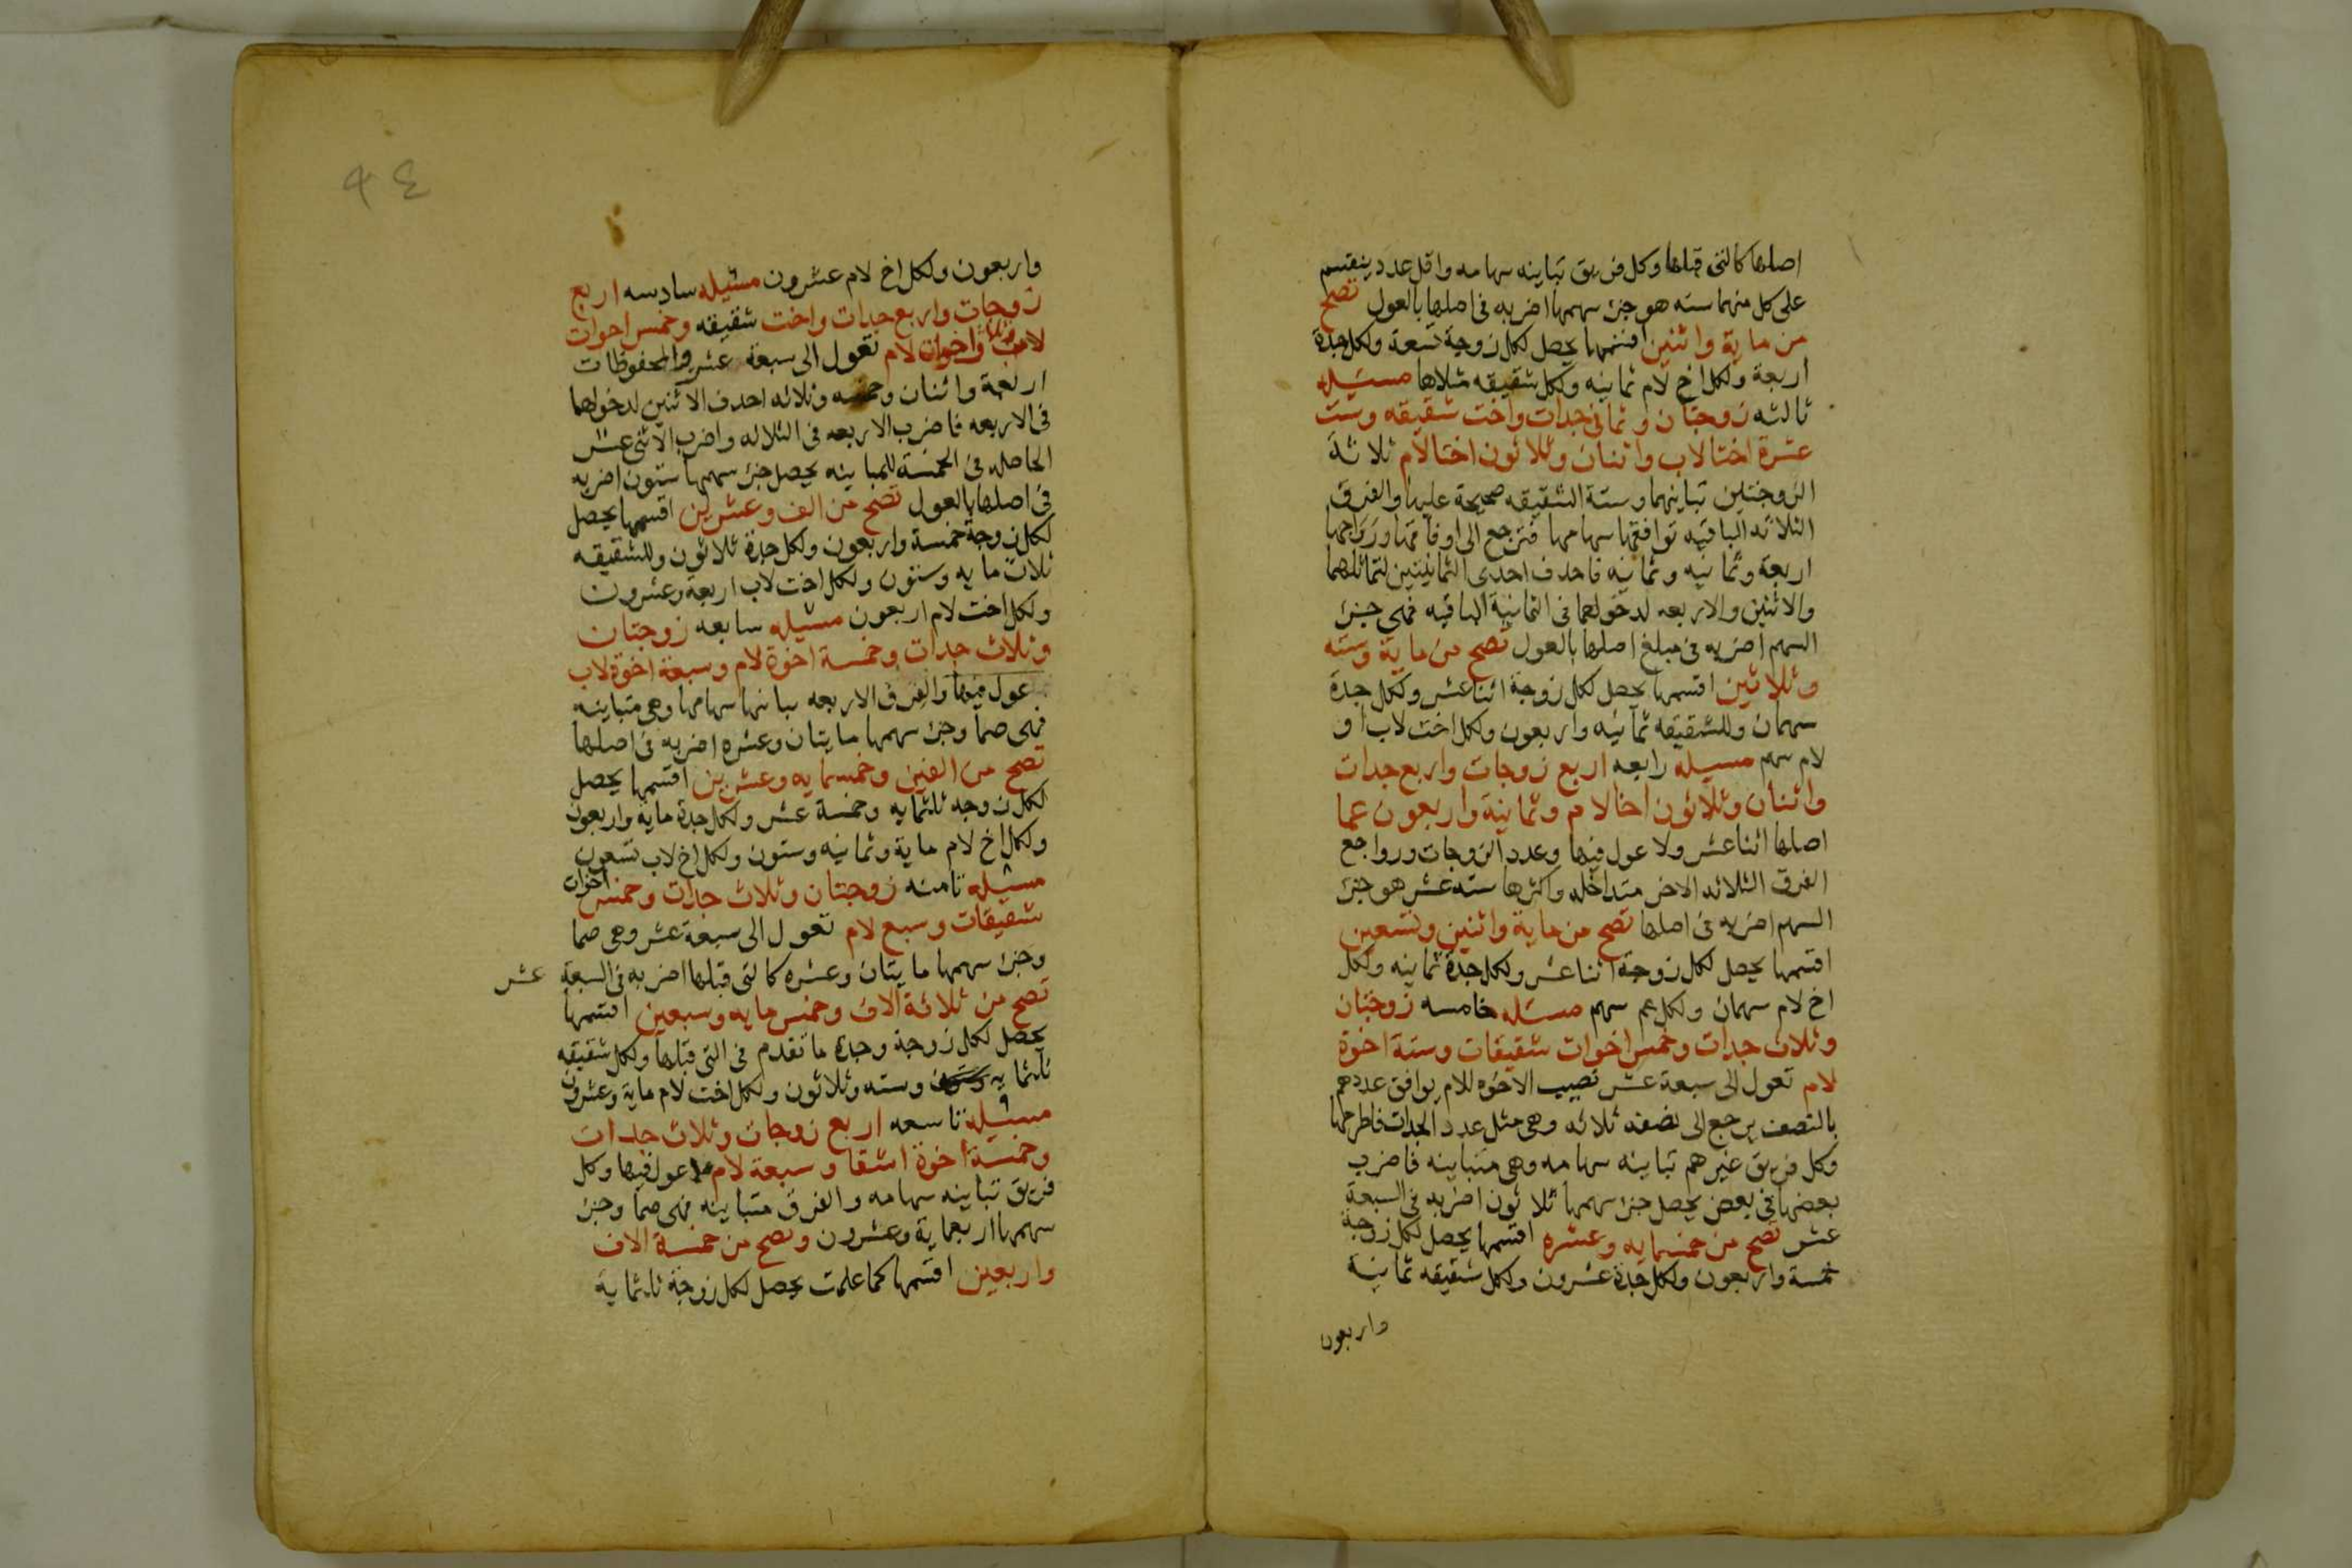 اصلها كالتى قبلها وكل فريق تباينه سهامه واقل عدد ينقسم
على كل منهما سته هو جزء سهمها اضربه فى اصلها بالعول تصح
من ماية واثنين اقسمها يحصل لكل زوجة تسعة ولكل جدة
اربعة ولكل اخ لام ثمانيه ولكل شقيقه مثلاها مسئله
ثالثه زوجتان وثمانى جدات واخت شقيقه وست
عشرة اختا لاب واثنان وثلاثون اختا لام ثلاثة
الزوجتين تباينهما وستة الشقيقه صحيحة عليها والفرق
الثلاثه الباقيه توافقها سهامها فترجع الى اوفاقها ورواجعها
اربعة وثمانيه وثمانيه فاحذف احدى الثمانيتين لتماثلهما
والاثنين والاربعه لدخولهما فى الثمانية الباقيه فهى جزء
السهم اضربه فى مبلغ اصلها بالعول تصح من ماية وسته
وثلاثين اقسمها يحصل لكل زوجة اثنا عشر ولكل جدة
سهمان وللشقيقه ثمانيه واربعون ولكل اخت لاب او
لام سهم مسيله رابعه اربع زوجات واربع جدات
واثنان وثلاثون اخا لام وثمانية واربعون عما
اصلها اثنا عشر ولا عول فيها وعدد الزوجات ورواجع
الفرق الثلاثه الاخر متداخله واكثرها ستة عشر هو جزء
السهم اضربه فى اصلها تصح من ماية واثنين وتسعين
اقسمها يحصل لكل زوجة اثنا عشر ولكل جدة ثمانيه ولكل
اخ لام سهمان ولكل عم سهم مسئله خامسه زوجتان
وثلاث جدات وخمس اخوات شقيقات وستة اخوة
لام تعول الى سبعة عشر نصيب الاخوه للام يوافق عددهم
بالنصف يرجع الى نصفه ثلاثه وهى مثل عدد الجدات فاطرحها
وكل فريق غيرهم تباينه سهامه وهى متباينه فاضرب
بعضها فى بعض يحصل جزء سهمها ثلاثون اضربه فى السبعة
عشر تصح من خمسمايه وعشره اقسمها يحصل لكل زوجة
خمسة واربعون ولكل جدة عشرون ولكل شقيقه ثمانية
واربعون
٤٩
واربعون ولكل اخ لام عشرون مسئله سادسه اربع
زوجات واربع جدات واخت شقيقه وخمس اخوات
لاب واخوات لام تعول الى سبعة عشر والمحفوظات
اربعة واثنان وخمسه وثلاثه احذف الاثنين لدخولهما
فى الاربعه فاضرب الاربعه فى الثلاثه واضرب الاثنى عشر
الحاصله فى الخمسة للمباينه يحصل جزء سهمها ستون اضربه
فى اصلها بالعول تصح من الف وعشرين اقسمها يحصل
لكل زوجة خمسة واربعون ولكل جدة ثلاثون وللشقيقه
ثلاث مايه وستون ولكل اخت لاب اربعة وعشرون
ولكل اخت لام اربعون مسئله سابعه زوجتان
وثلاث جدات وخمسة اخوة لام وسبعة اخوة لاب
عول فيها والفرق الاربعه تباينها سهامها وهى متباينه
فهى صما وجزء سهمها مايتان وعشره اضربه فى اصلها
تصح من الفين وخمسمايه وعشرين اقسمها يحصل
لكل زوجه ثلثمايه وخمسة عشر ولكل جدة ماية واربعون
ولكل اخ لام ماية وثمانيه وستون ولكل اخ لاب تسعون
مسئله ثامنه زوجتان وثلاث جدات وخمس اخوات
شقيقات وسبع لام تعول الى سبعة عشر وهى صما
وجزء سهمها مايتان وعشره كالتى قبلها اضربه فى السبعة عشر
تصح من ثلاثة الاف وخمس مايه وسبعين اقسمها
يحصل لكل زوجة وجدة ما تقدم فى التى قبلها ولكل شقيقه
ثلثمايه وسته وثلاثون ولكل اخت لام ماية وعشرون
مسئله تاسعه اربع زوجات وثلاث جدات
وخمسة اخوة اشقا وسبعة لام لا عول فيها وكل
فريق تباينه سهامه والفرق متباينه فهى صما وجزء
سهمها اربعماية وعشرون وتصح من خمسة الاف
واربعين اقسمها كما علمت يحصل لكل زوجة ثلثماية